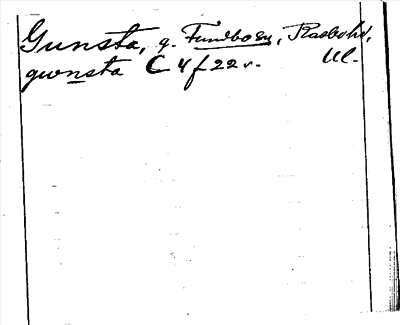 Gunsta, g. Funbo sn, Rasbo hd,
Ul.
gwnsta C 4 f 22 v.